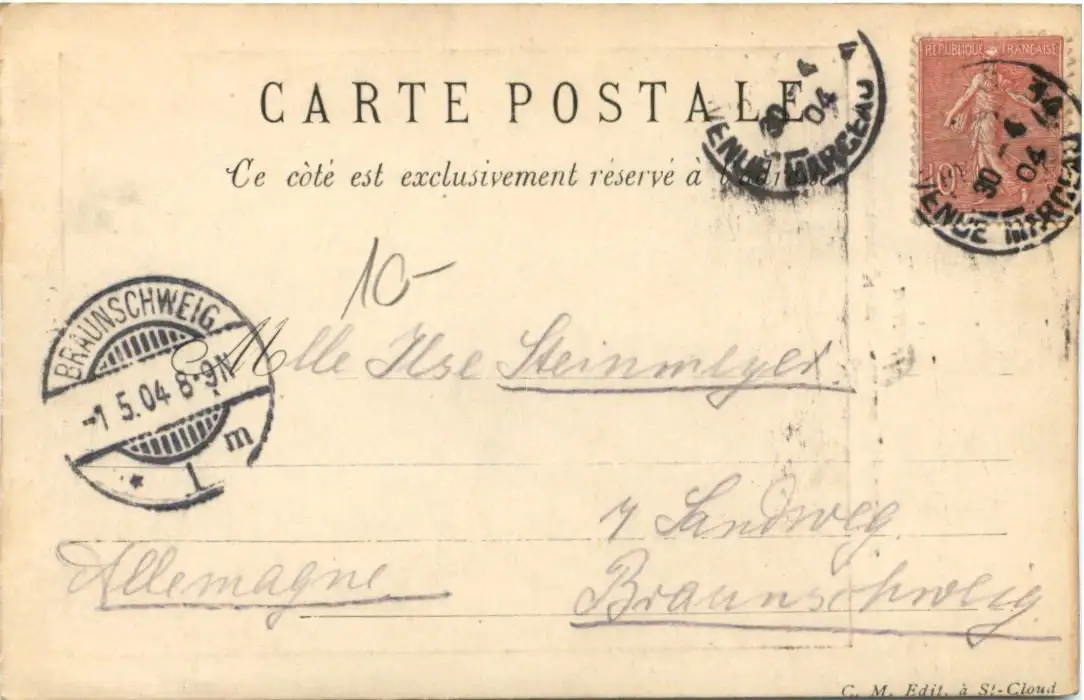 RÉPUBLIQUE FRANÇAISE
10
CARTE POSTALE
30 - 4
04
AVENUE MARCEAU
30 - 4
04
AVENUE MARCEAU
Ce côté est exclusivement réservé à l'adresse
10-
BRAUNSCHWEIG
-1 5.04 8-9N
* 1 m
Mlle Ilse Steinmeyer
7 Sandweg
Allemagne
Braunschweig
C. M. Edit. à St-Cloud